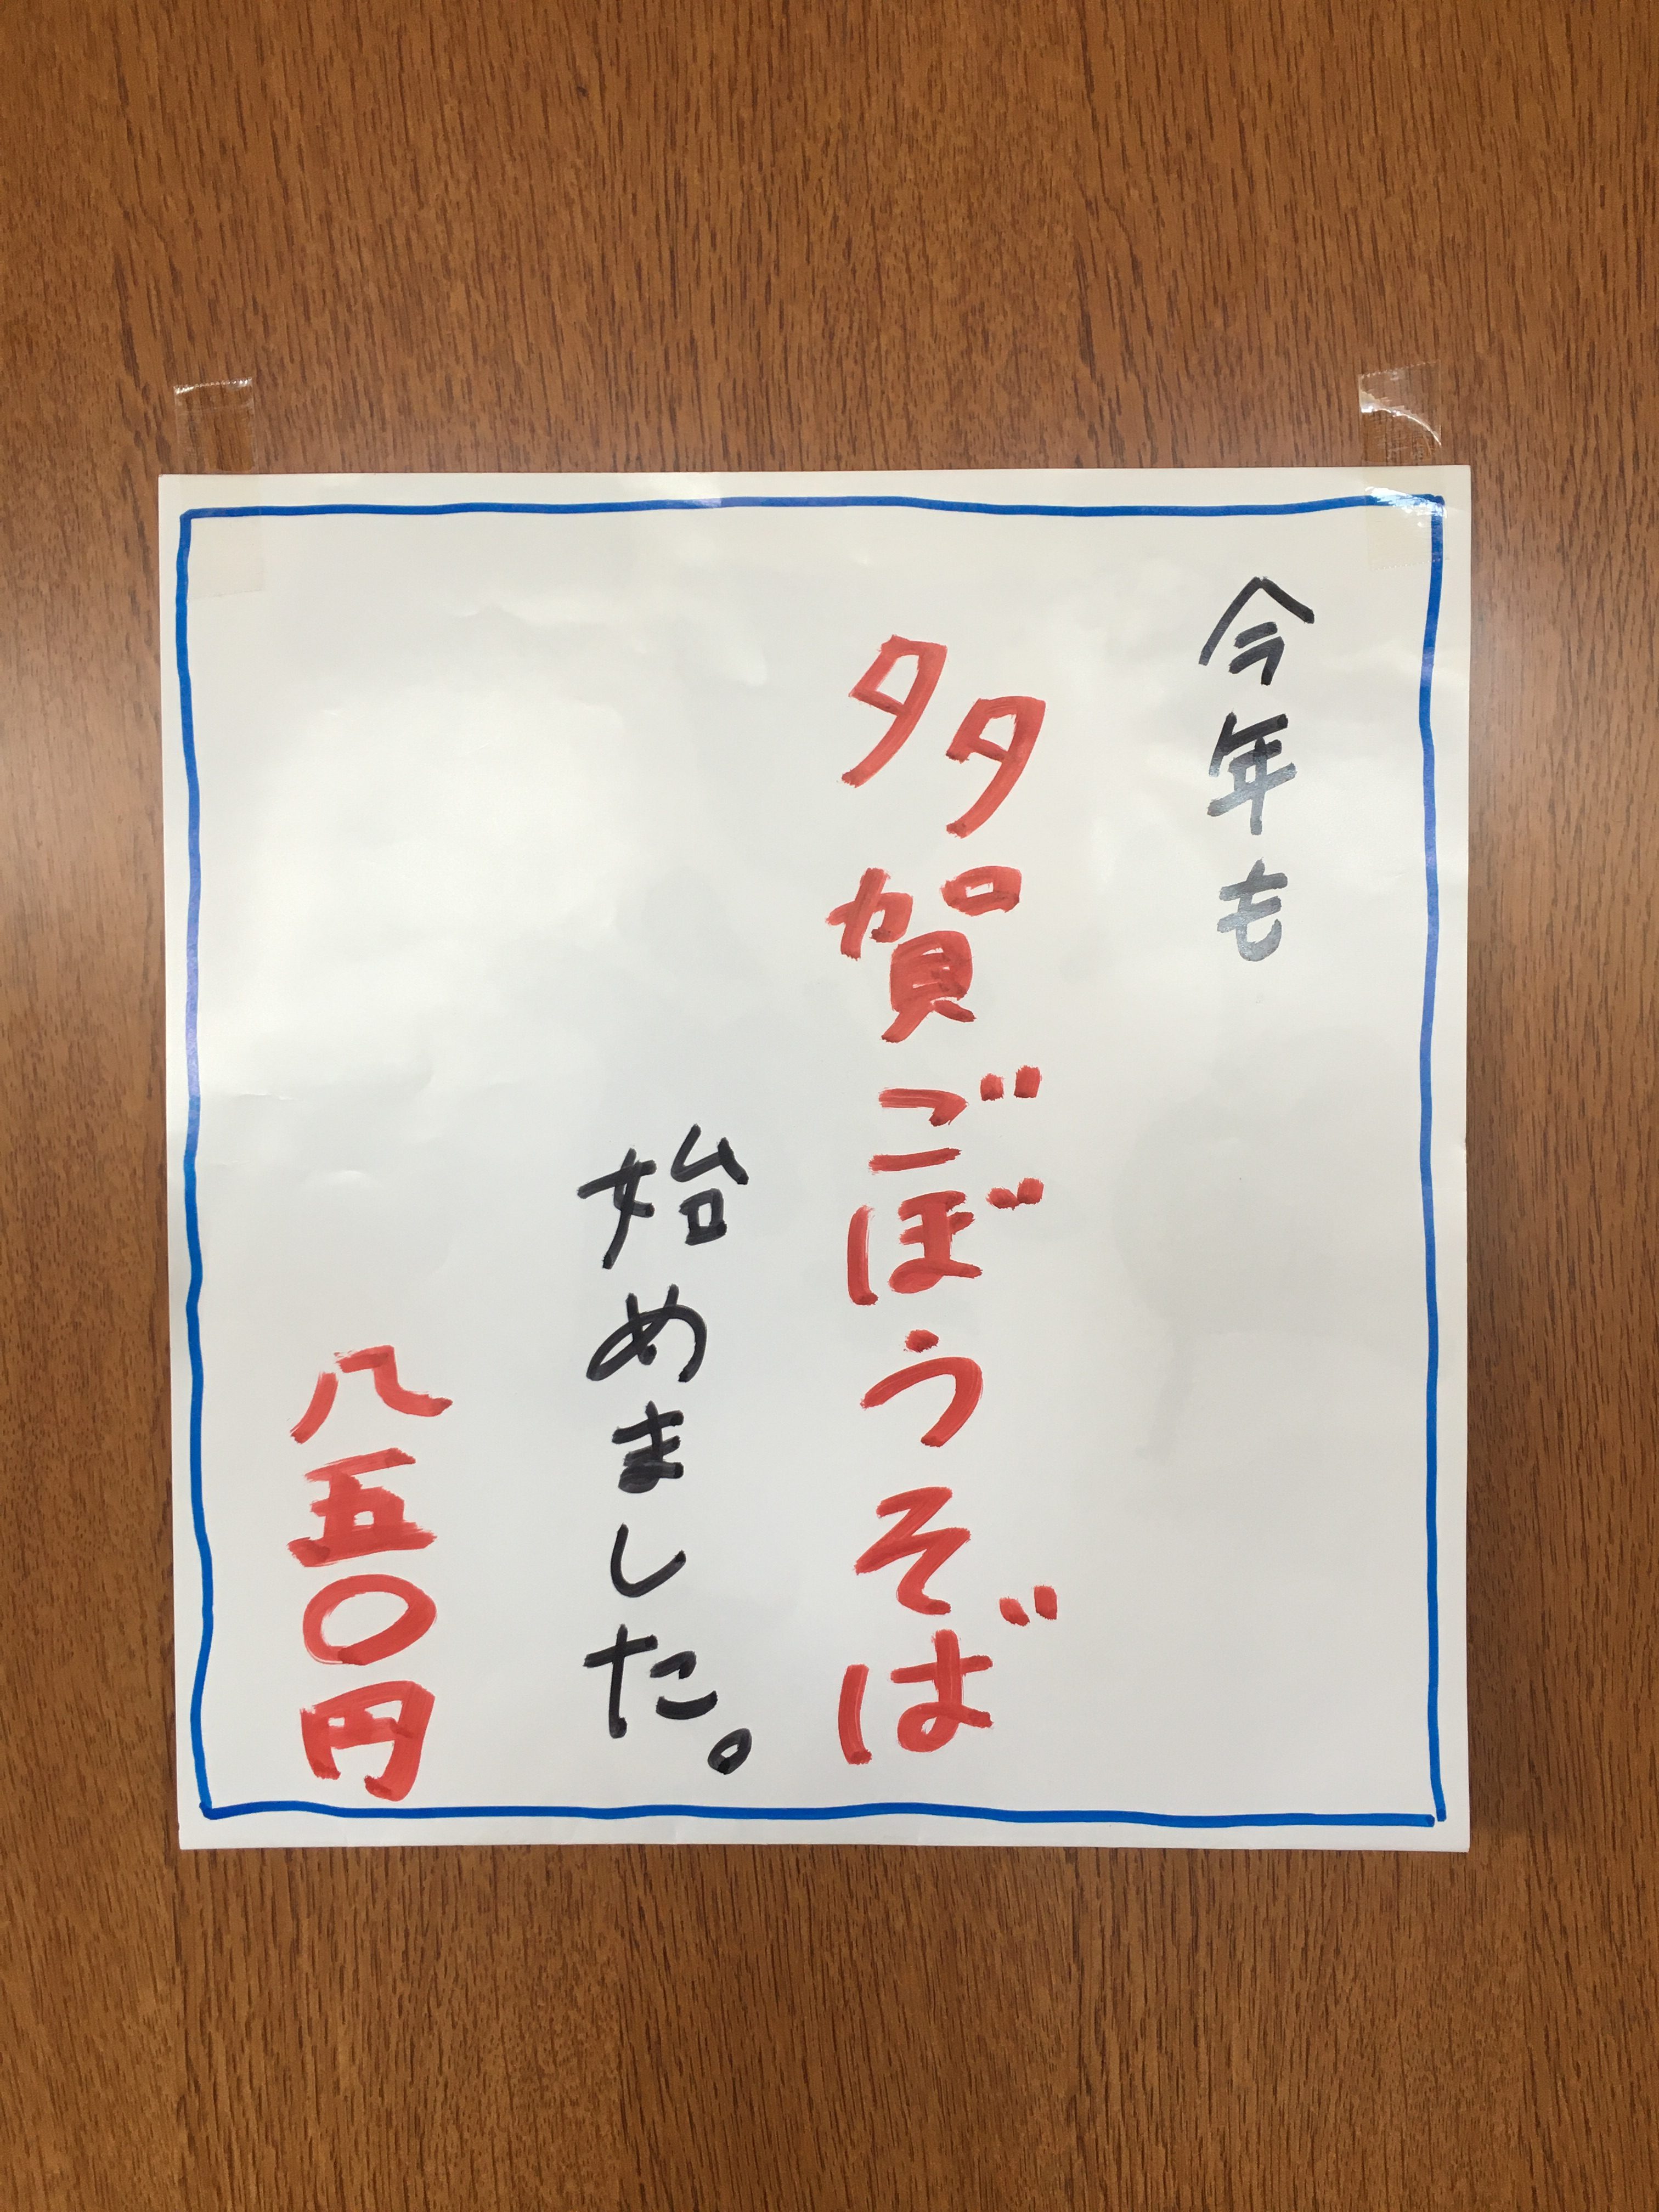 今年も
多賀ごぼうそば
始めました。
八五〇円